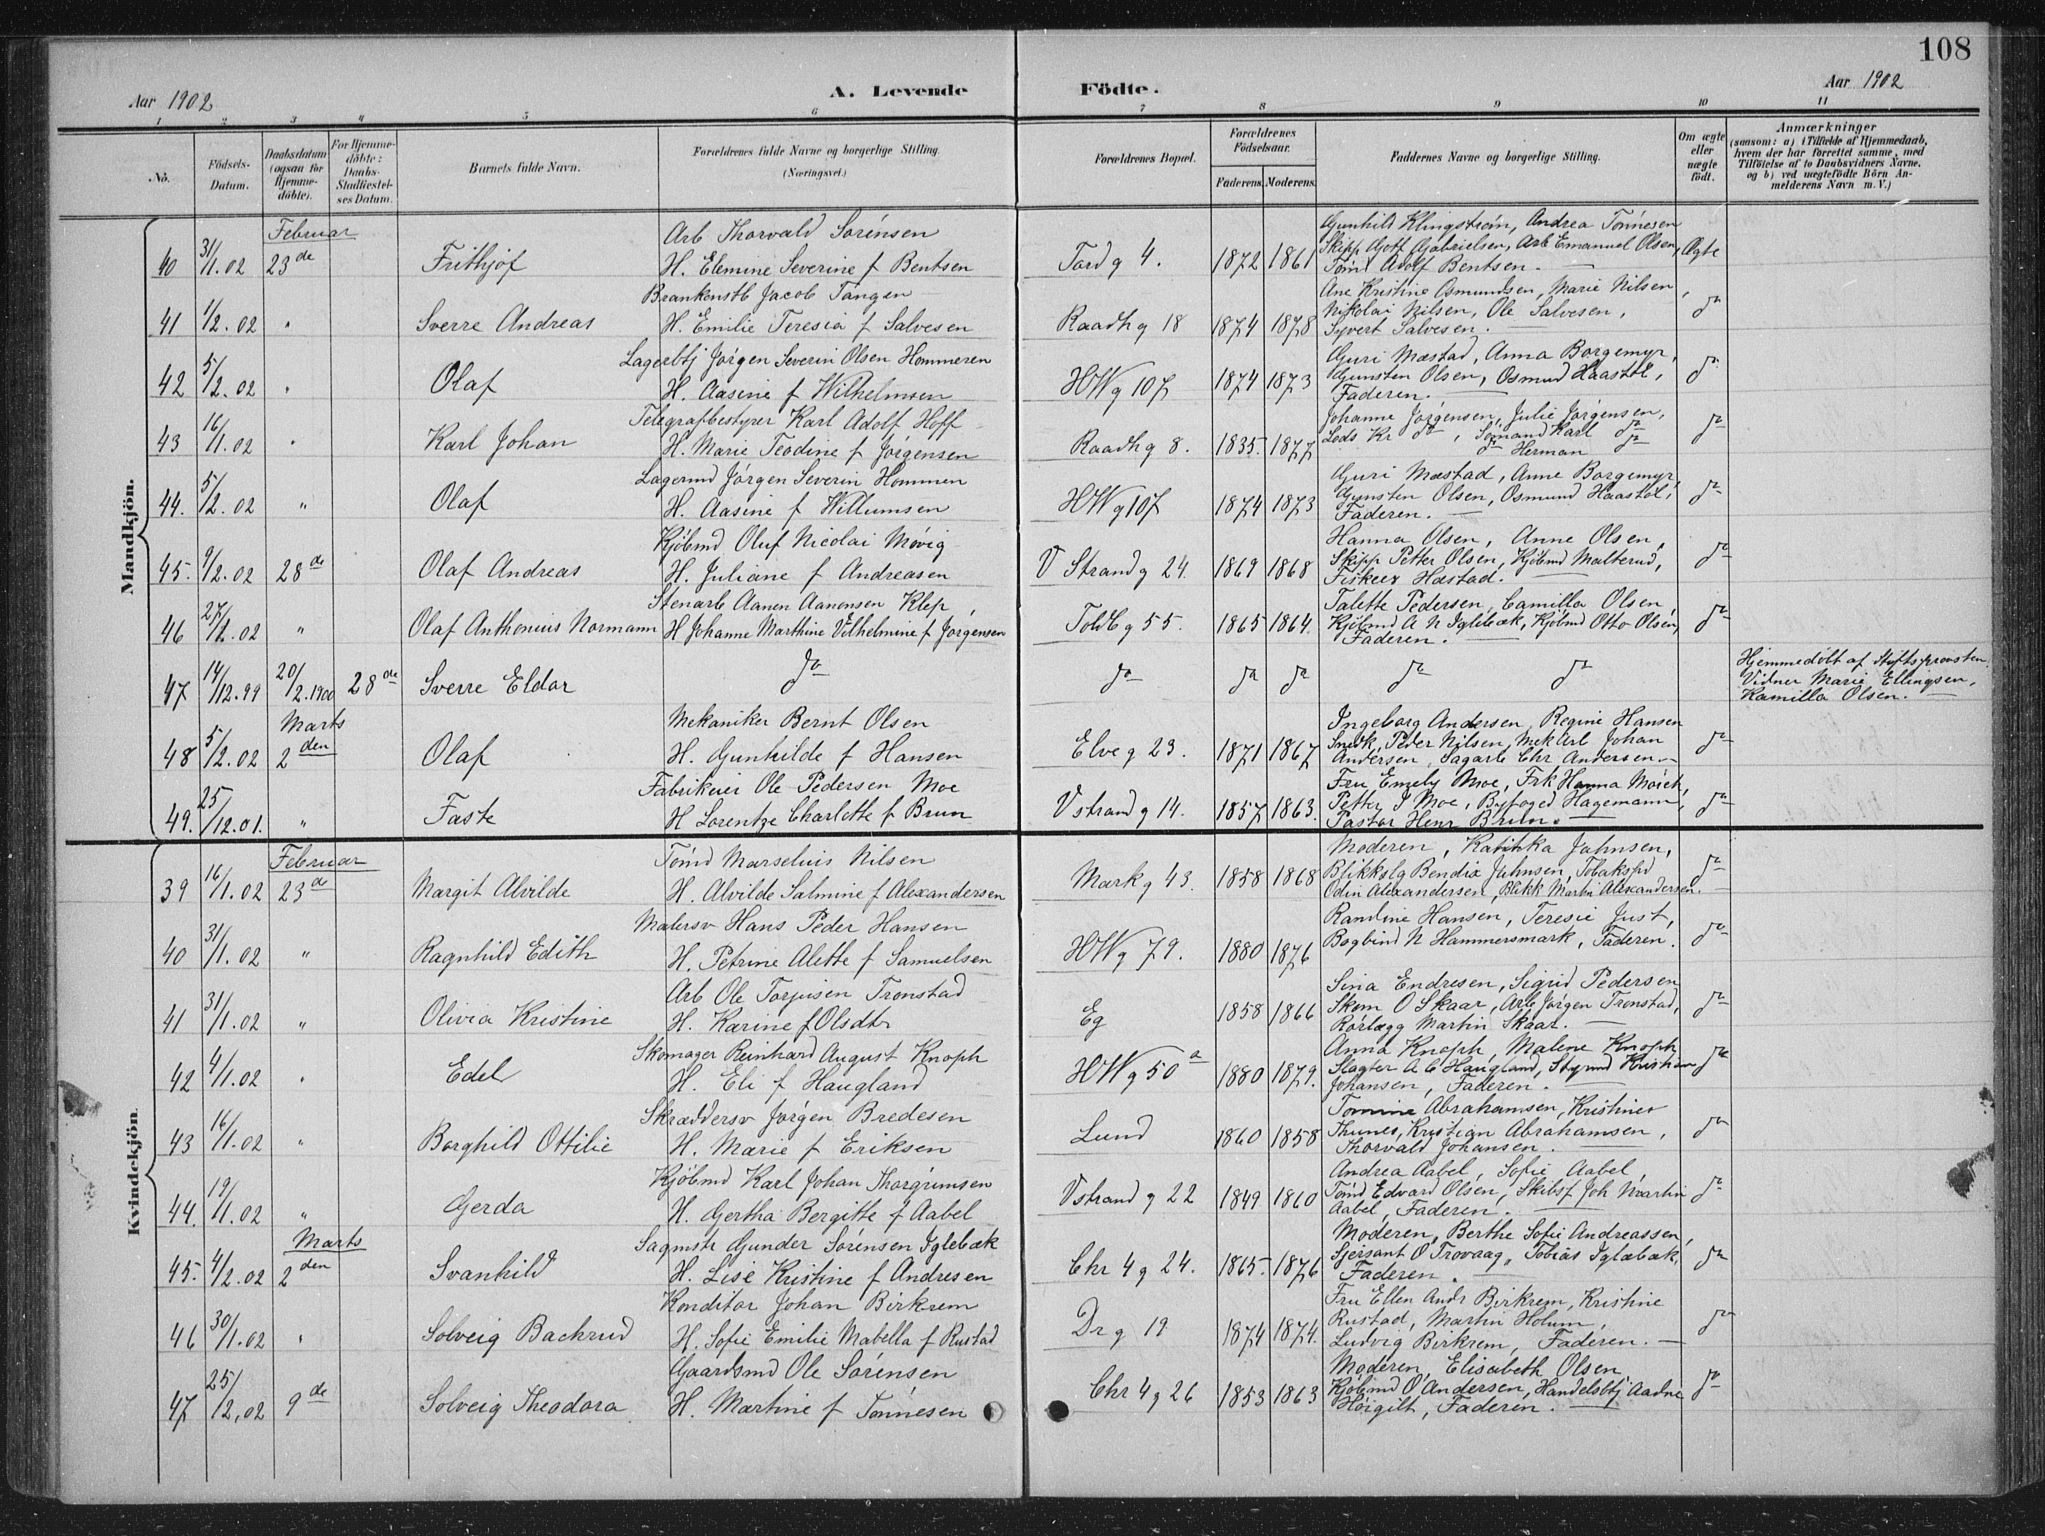 108
Aar 1902
A. Levende
Födte.
Aar 1902
1 2 3 4 5 6 7 8 9 10 11
No.
Födsels-Datum.
Daabsdatum (ogsaa for Hjemmedöbte).
For Hjemmedöbte: Daabs-Stadfæstelses Datum.
Barnets fulde Navn.
Forældrenes fulde Navne og borgerlige Stilling.
(Næringsvei.)
Forældrenes Bopæl.
Forældrenes Födselsaar.
Faderens. Moderens.
Faddernes Navne og borgerlige Stilling.
Om ægte eller uægte født.
Anmærkninger
(saasom: a) i Tilfælde af Hjemmedaab, hvem der har forrettet samme, med Tilföielse af to Daabsvidners Navne, og b) ved uægtefödte Börn Anmelderens Navn m. V.)
Mandkjön.
Februar
Arb Thorvald Sørensen
Gunhild Klingstrøm, Andrea Tønnesen
40 31/1.02 23de Frithjof H. Elemine Severine f Bentsen Tord g 4. 1872 1861 Skipp Gjotf Gabrielsen, Arb Emanuel Olsen, Ægte
Tømr Adolf Bentsen.
Brankonstb Jacob Tangen
Ane Kristine Osmundsen, Marie Nilsen,
41 1/2.02 " Sverre Andreas H. Emilie Teresia f Salvesen Raadh g 18 1874 1878 Nikolai Nilsen, Ole Salvesen, do
Syvert Salvesen.
Lagerbtj Jørgen Severin Olsen Hommeren
Guri Mæstad, Anna Borgemyr,
42 5/2.02 " Olaf H. Aasine f Wilhelmsen HWg 107 1874 1873 Gunsten Olsen, Osmund Haastøl, do
Faderen.
Telegrafbestyrer Karl Adolf Hoff
Johanne Jørgensen, Julie Jørgensen,
43 16/1.02 " Karl Johan H. Marie Teodine f Jørgensen Raadh g 8. 1835. 1877 Lods Kr do, Sømand Karl do do
do Herman do
Lagermd Jørgen Severin Hommen
Guri Mæstad, Anne Borgemyr,
44. 5/2.02 " Olaf H. Aasine f Willumsen HWg 107 1874 1873 Gunsten Olsen, Osmund Haastøl, do
Faderen.
Kjøbmd Oluf Nicolai Møvig
Hanna Olsen, Anne Olsen,
45. 9/2.02 28de Olaf Andreas H. Juliane f Andreasen V Strand g 24. 1869 1868 Skipp Petter Olsen, Kjøbmd Malterud, do
Fisker Hæstad.
Stenarb Aanen Aanensen Klep
Talette Pedersen, Camilla Olsen,
46 27/12.02 " Olaf Anthonius Normann H Johanne Marthine Vilhelmine f Jørgensen Toldb g 55. 1865 1864. Kjøbmd A N Iglebæk, Kjøbmd Otto Olsen, do
Faderen.
47 14/12.99 20/2.1900 28de Sverre Eldar do do do do do do Hjemmedøbt af Stiftsprovsten.
Vidner Marie Ellingsen,
Kamilla Olsen.
Marts
Mekaniker Bernt Olsen
Ingeborg Andersen, Regine Hansen
48 5/2.02 2den Olaf H. Gunhilde f Hansen Elve g 23. 1871 1867 Snedk, Peder Nilsen, Mek Arb Johan do
Andersen, Sagarb Chr Andersen
Fabrikeier Ole Pedersen Moe
Fru Emely Moe, Frk Hanna Mørch,
49. 25/12.01. " Faste H Lorentze Charlotte f Brun Vstrand g 14. 1857 1863. Petter J Moe, Byfoged Hagemann, do
Pastor Henr Brun.
Kvindekjön.
Februar
Tømd Marselius Nilsen
Moderen, Kathinka Johnsen,
39 16/1.02 23de Margit Alvilde H. Alvilde Salmine f Alexandersen Mark g 43. 1858 1868 Blikkslg Bendix Johnsen, Tobakspd do
Odin Alexandersen, Blikk Martin Alexandersen.
Malersv Hans Peder Hansen
Randine Hansen, Teresie Just,
40 31/1.02 " Ragnhild Edith H. Petrine Alette f Samuelsen HWg 79. 1880 1876 Bogbind N Hammersmark, Faderen. do
Arb Ole Torjusen Tronstad
Sina Endresen, Sigrid Pedersen
41 31/1.02 " Olivia Kristine H. Karine f Olsdtr Eg 1858 1866 Skom O Skaar, Arb Jørgen Tronstad, do
Rørlægg Martin Skaar.
Skomager Reinhard August Knoph
Anna Knoph, Malene Knoph
42 4/1.02 " Edel H. Eli f Haugland HWg 50a 1880 1879. Slagter A C Haugland, Styrmd Kristian do
Johansen, Faderen.
Skræddersv Jørgen Bredesen
Tomine Abrahamsen, Kristine
43 16/1.02 " Borghild Ottilie H. Marie f Eriksen Lund 1860 1858 Thunes, Kristian Abrahamsen, do
Thorvald Johansen.
Kjøbmd Karl Johan Thorgrimsen
Andrea Aabel, Sofie Aabel,
44. 19/1.02 " Gerda H. Gertha Bergitte f Aabel Vstrand g 22 1849 1860 Tømd Edvard Olsen, Skibsf Joh Martin do
Aabel, Faderen.
Marts
Sagmstr Gunder Sørensen Iglebæk
Moderen, Berthe Sofie Andreassen,
45. 4/2.02 2den Svanhild H. Lise Kristine f Andresen Chr 4 g 24. 1865. 1876 Sjersant O Trovaag, Tobias Iglebæk, do
Faderen.
Konditor Johan Birkrem
Fru Ellen Andr Birkrem, Kristine
46 30/1.02 " Solveig Backrud H. Sofie Emilie Mabella f Rustad Dr g 19 1874 1874. Rustad, Martin Holum, do
Ludvig Birkrem, Faderen.
Gaardsmd Ole Sørensen
Moderen, Elisabeth Olsen,
47 25/12.02 9de Solveig Theodora H. Martine f Tønnesen Chr 4 g 26 1853 1863 Kjøbmd O Andersen, Handelsbtj Aadne do
Høigilt, Faderen.